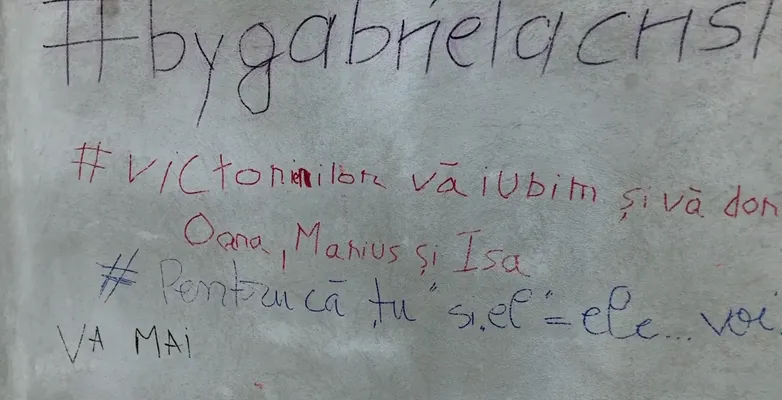 #bygabrielacrisi
#victorinilor vă iubim și vă dor
Oana, Marius și Isa
#Pentru că tu "si el" = ele... voi
VA MAI